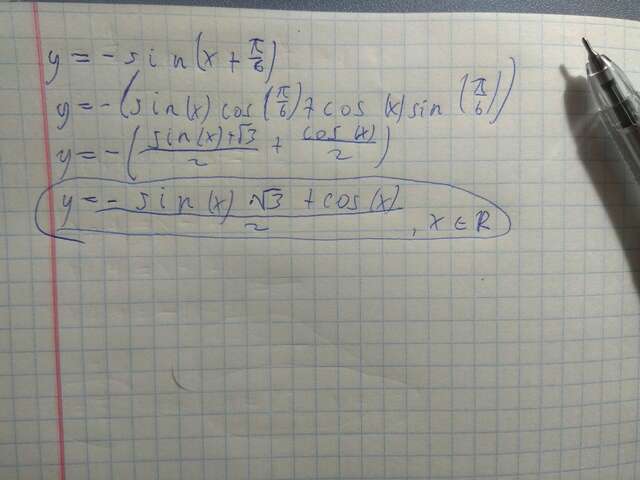 y = -sin(x + π/6)
y = -(sin(x) cos(π/6) + cos(x) sin(π/6))
y = -(sin(x)√3/2 + cos(x)/2)
y = - sin(x) √3 + cos(x) / 2, x ∈ R